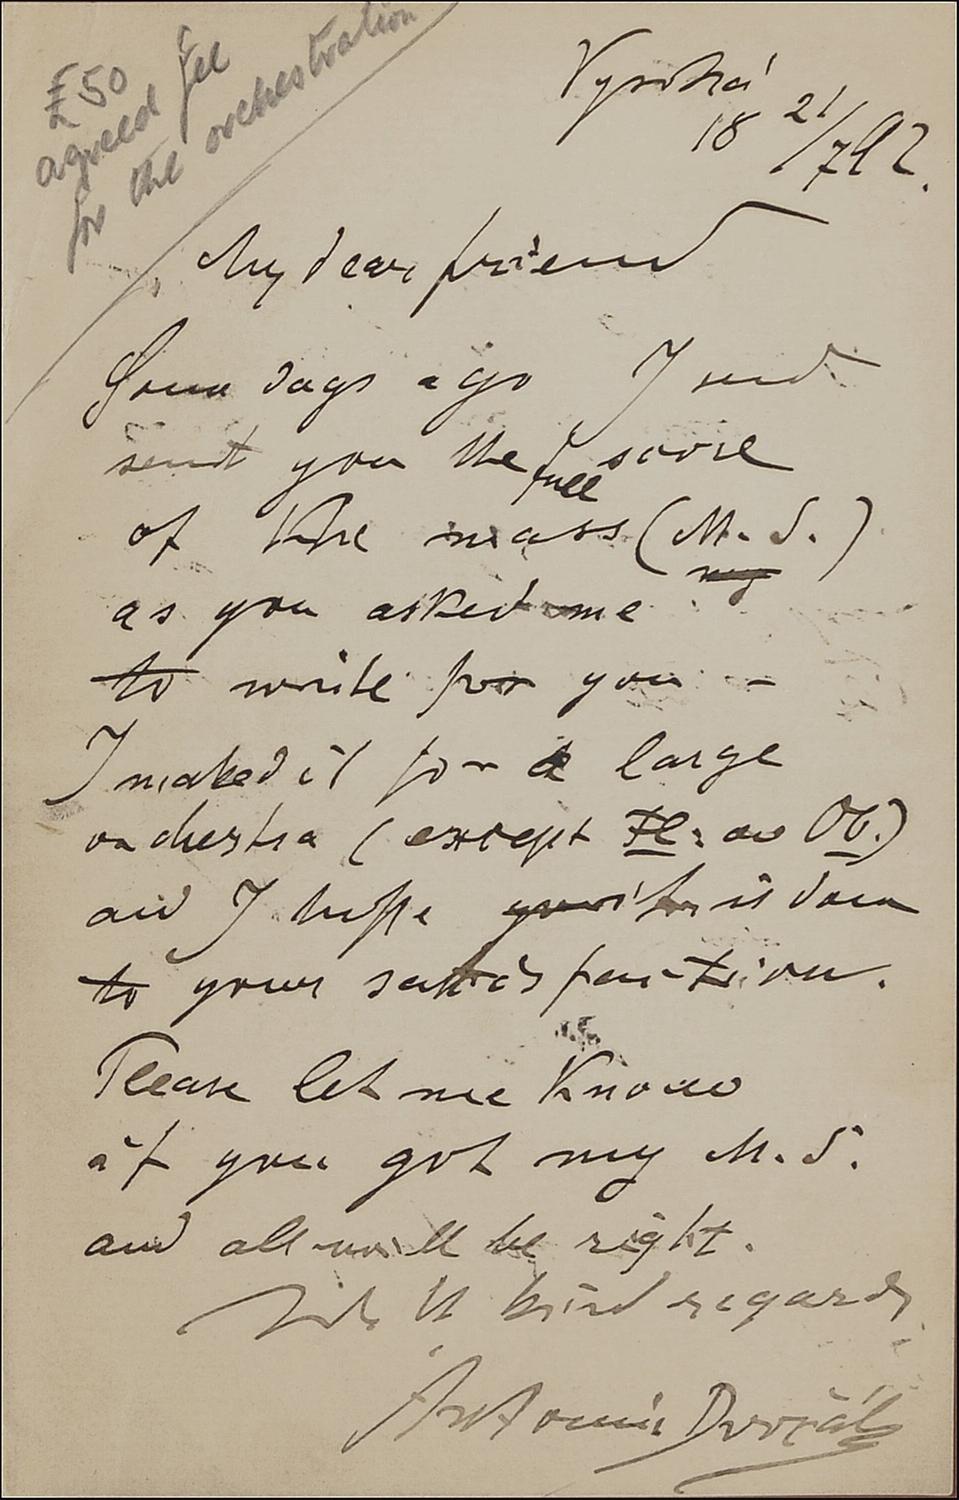 £50
agreed fee
for the orchestration
Vysoká
18 21/7 92.
My dear friend
Some days ago I send
sent you the full score
of the mass (M. S.)
my
as you asked me
to write for you –
I maked it for a large
orchestra (except Fl: ao Ob.)
and I hope is don
to your satisfaction.
Please let me know
if you got my M. S.
and all will be right.
With kind regards
Antonín Dvořák